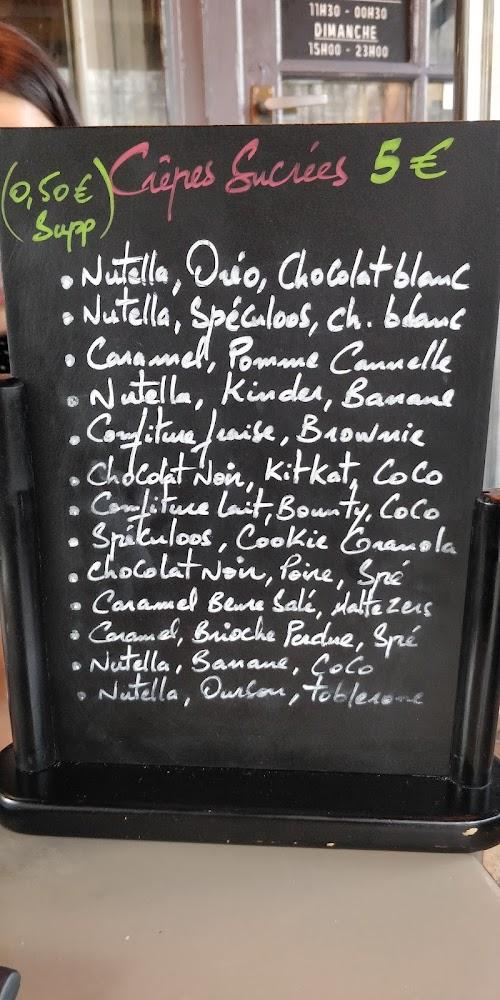 11H30 - 00H30
DIMANCHE
15H00 - 23H00
(0,50€ Supp)
Crêpes Sucrées 5€
• Nutella, Oréo, Chocolat blanc
• Nutella, Spéculoos, ch. blanc
• Caramel, Pomme Cannelle
• Nutella, Kinder, Banane
• Confiture fraise, Brownie
• Chocolat Noir, KitKat, CoCo
• Confiture Lait, Bounty, CoCo
• Spéculoos, Cookie Granola
• Chocolat Noir, Poire, Spé
• Caramel Beurre Salé, MalteZers
• Caramel, Brioche Perdue, Spé
• Nutella, Banane, CoCo
• Nutella, Ourson, toblerone